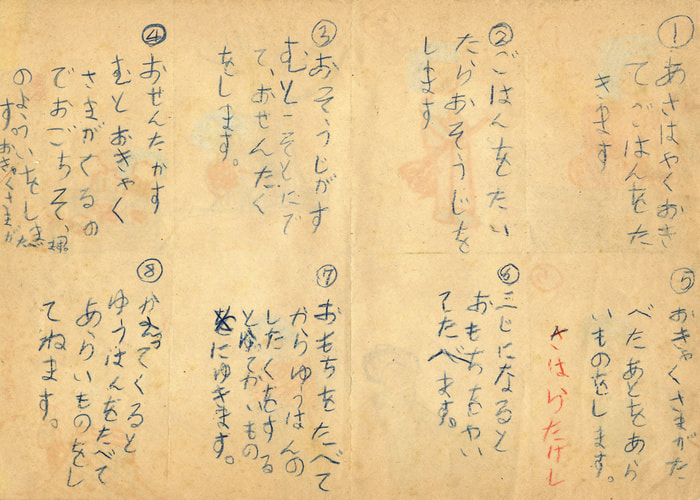 ①
あさはやくおき
てごはんをた
きます
②
ごはんをたい
たらおそうじを
します
③
おそうじがす
むとこそとにで
て、おせんたく
をします。
④
おせんたがす
むとおきゃく
さまがくるの
でおごちそ、
のよういをしま
す
おきゃくさまが
⑤
おきゃくさまがた
べたあとをあら
いものをします。
さはらたけし
⑥
三じになると
おもちをやい
てたべます。
⑦
おもちをたべて
からゆうはんの
したくをする
とゆうてかいもの
にゆきます。
⑧
かえってくると
ゆうはんをたべて
あらいものをし
てねます。